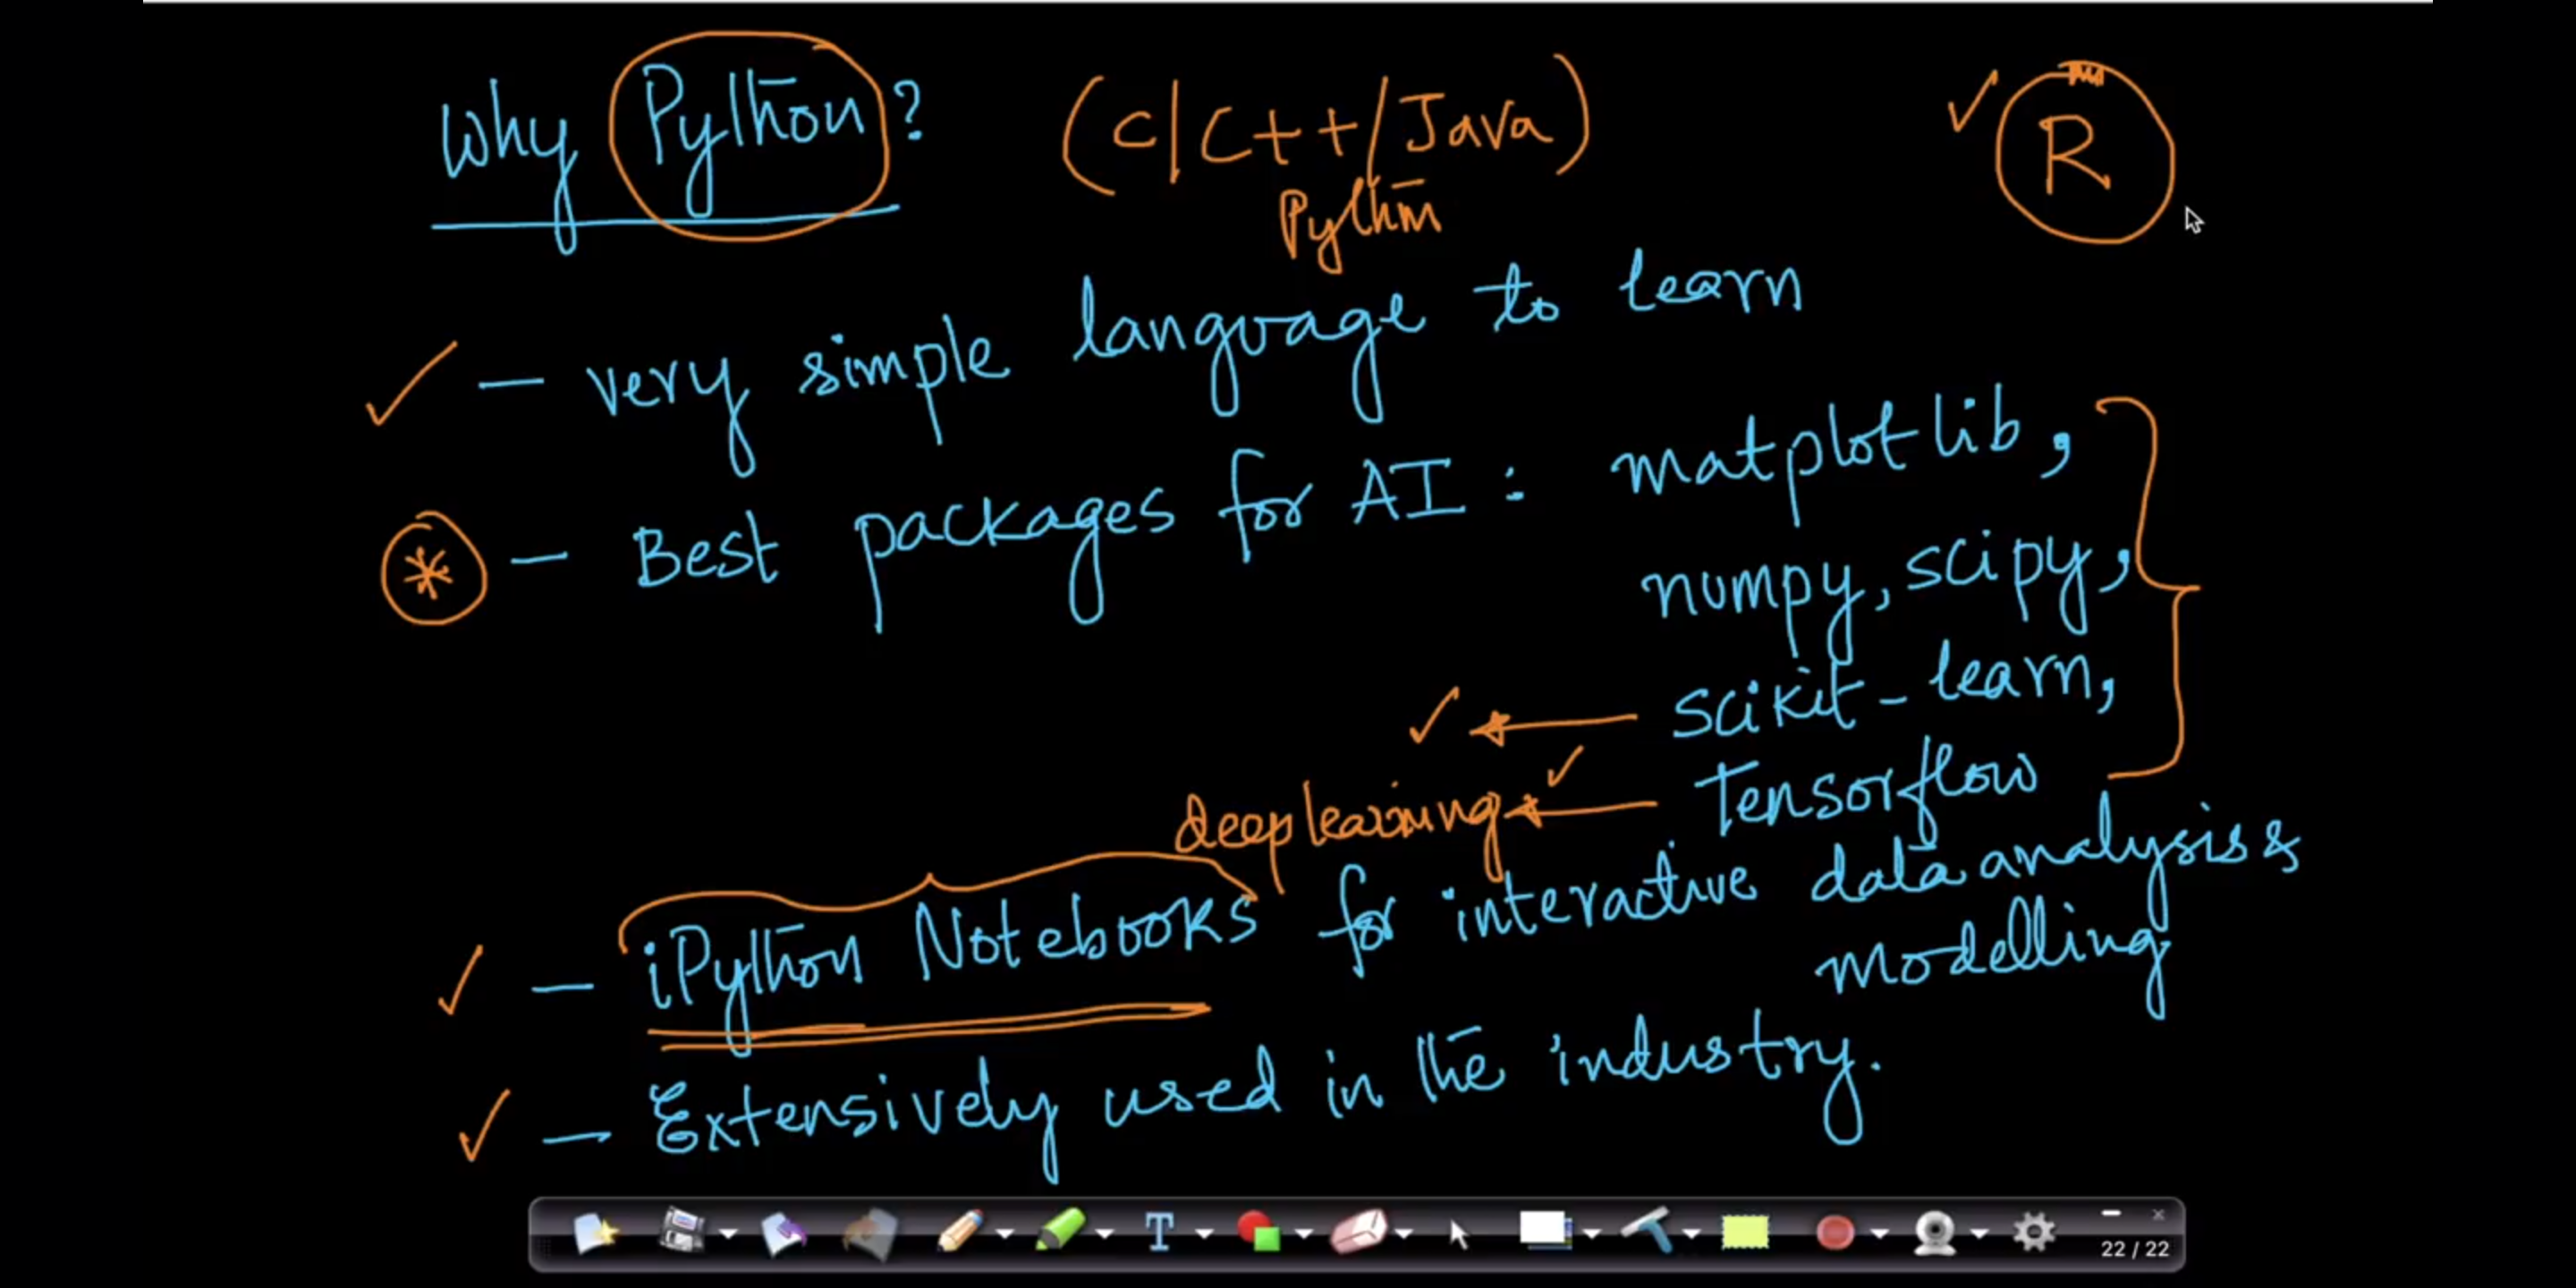 Why Python? (C/C++/Java) R
Python
- very simple language to learn
* - Best packages for AI: matplotlib,
numpy, scipy,
scikit-learn,
deep learning Tensorflow
- iPython Notebooks for interactive data analysis &
modelling
- Extensively used in the industry.
T
22 / 22